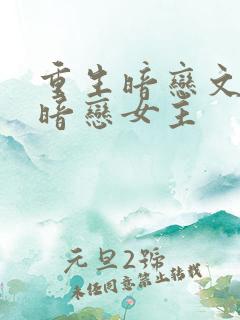 重生暗戀文
暗戀女主
元旦2號
未經同意禁止轉載